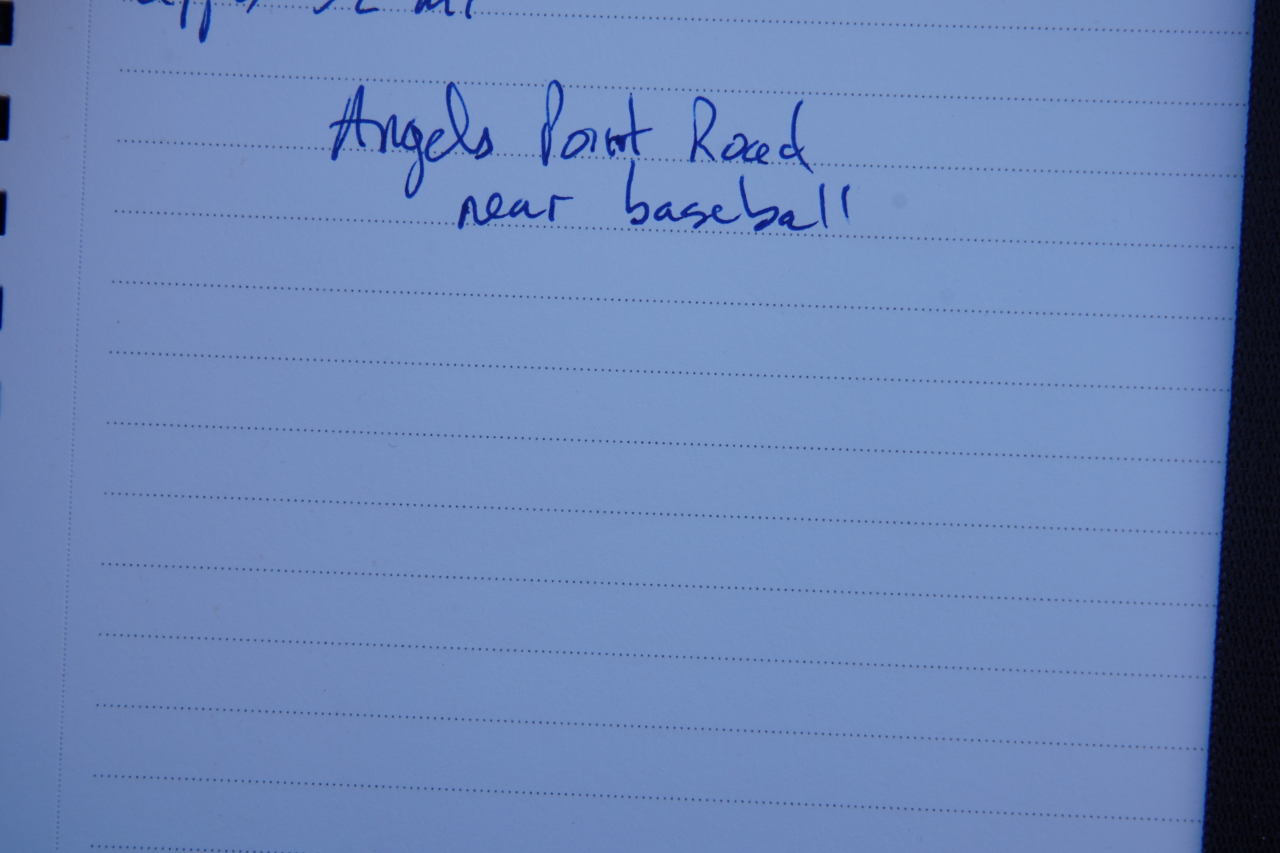 Angels Point Road
near baseball